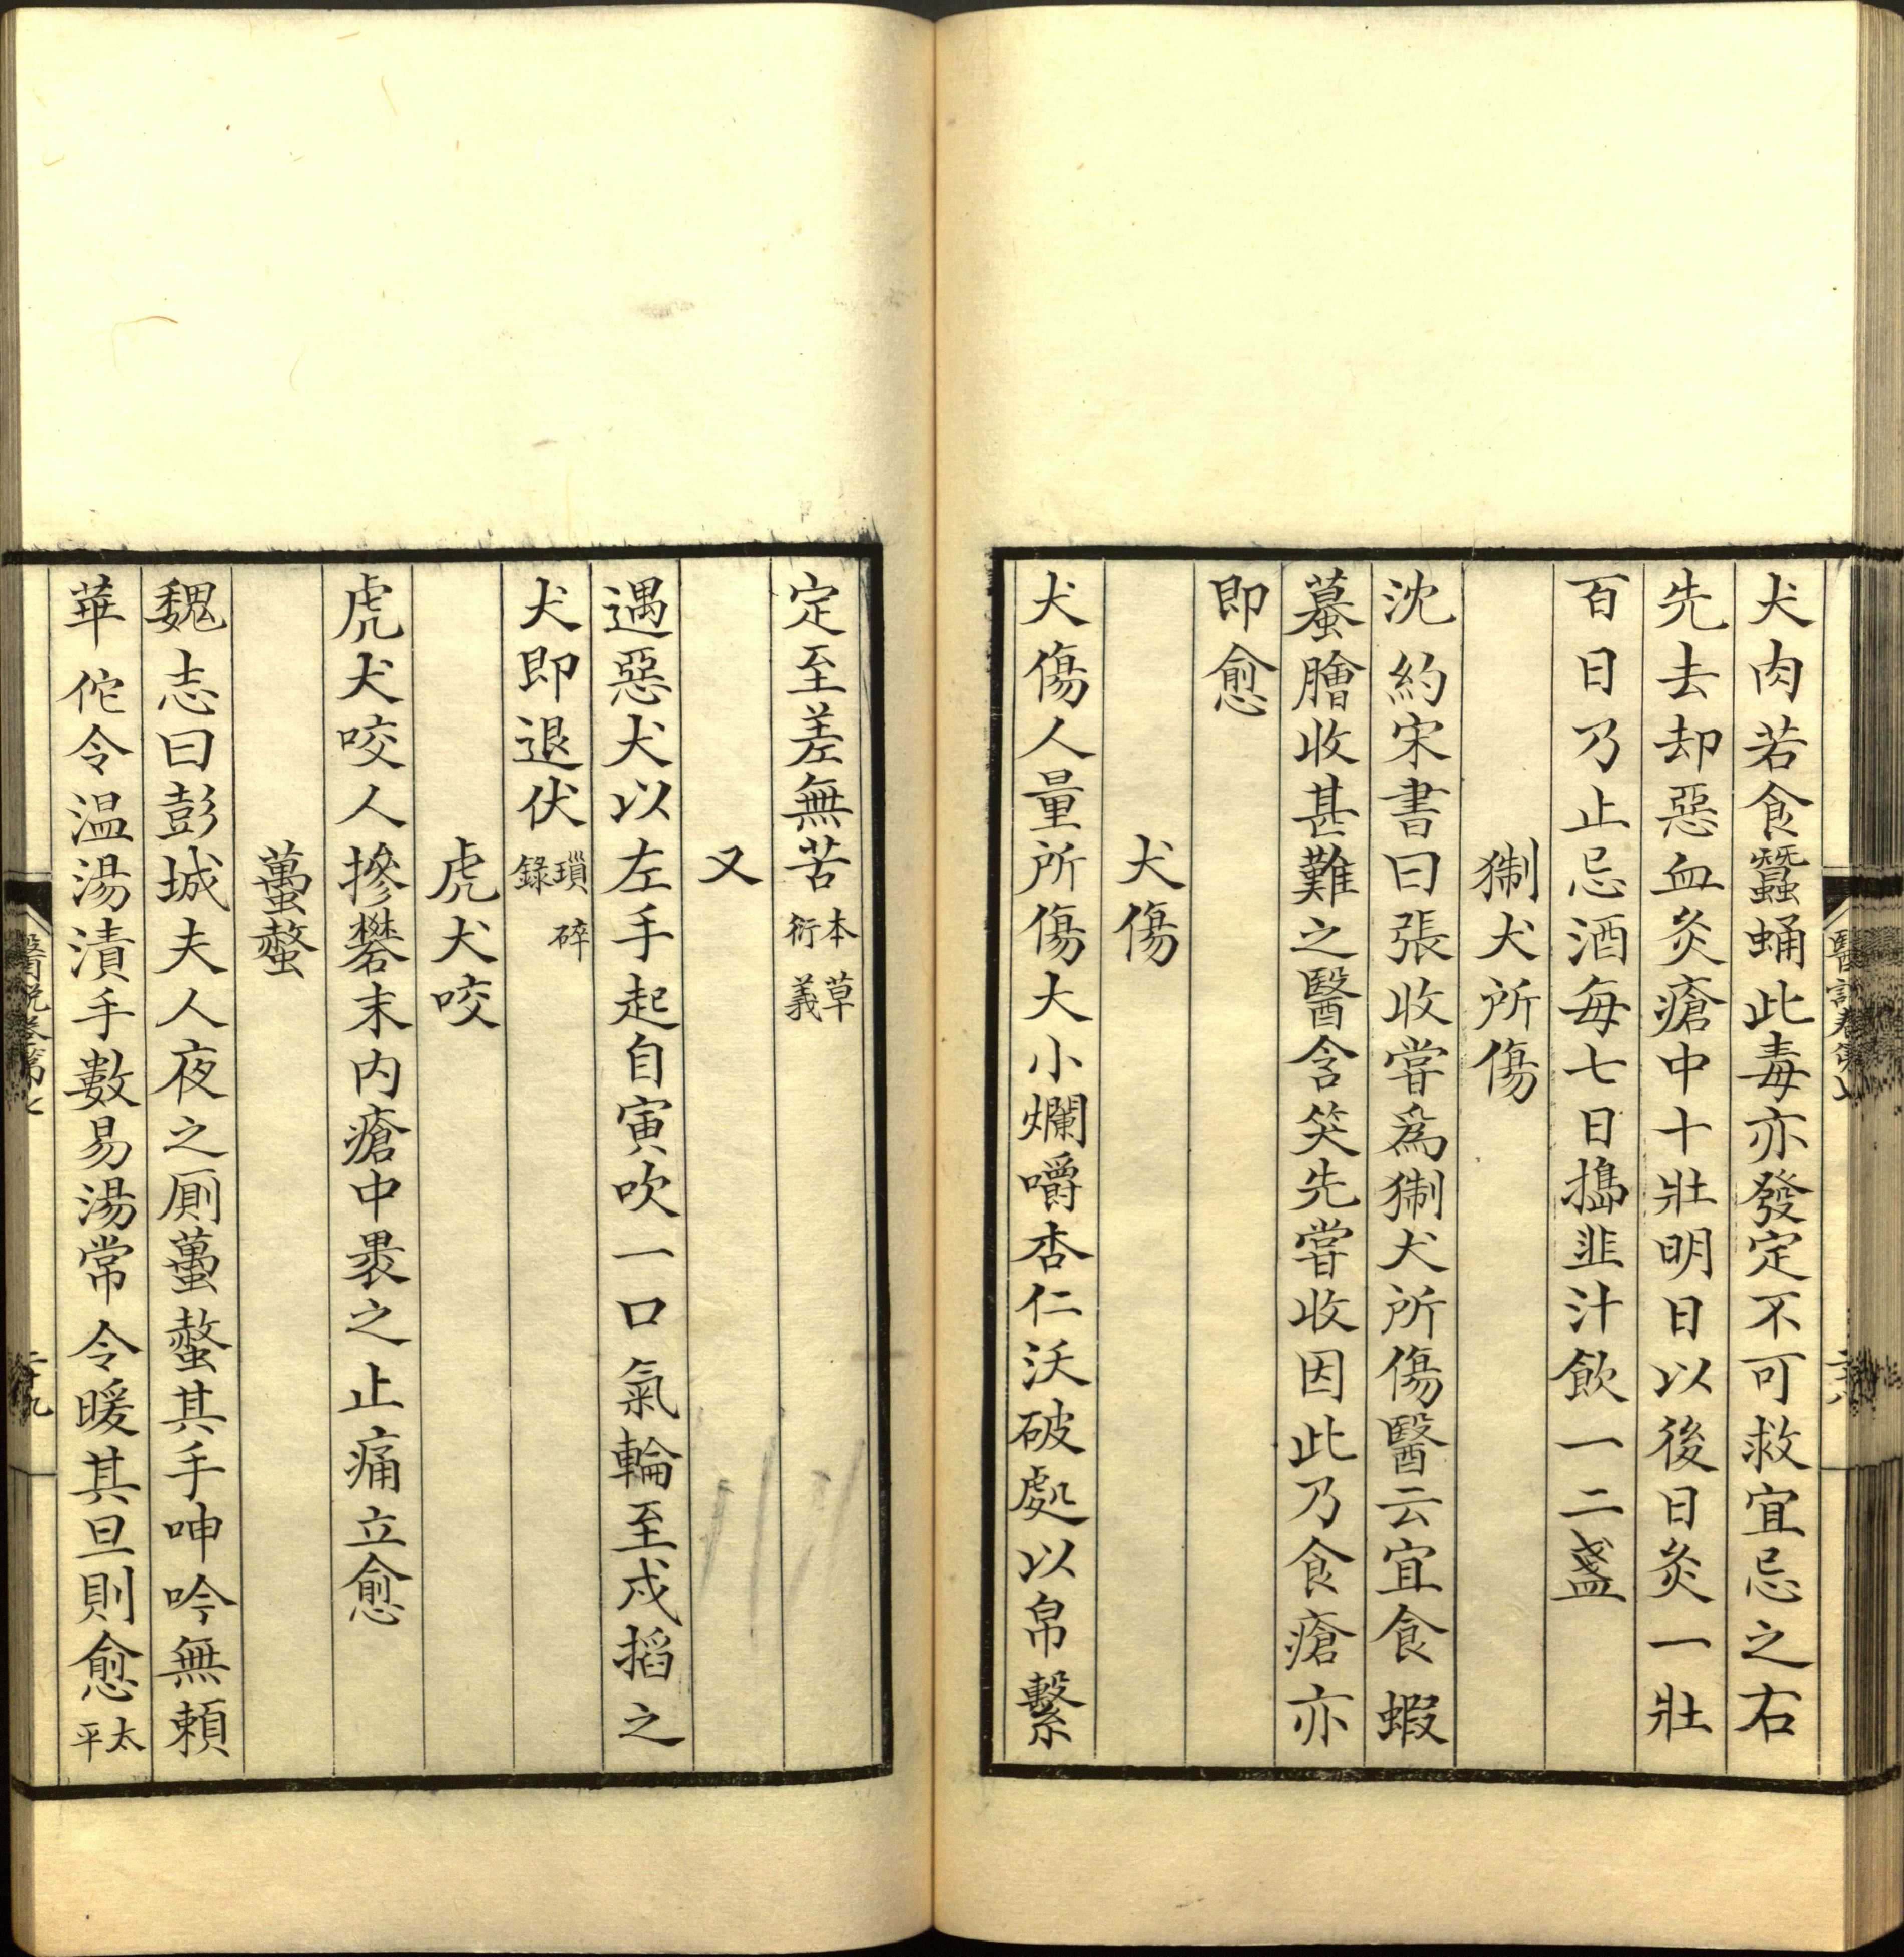 犬肉若食蠶蛹此毒亦發定不可救宜忌之右
先去却惡血灸瘡中十壯明日以後日灸一壯
百日乃止忌酒每七日搗韭汁飲一二盞
猘犬所傷
沈約宋書曰張收嘗爲猘犬所傷醫云宜食蝦
蟇膾收甚難之醫含笑先嘗收因此乃食瘡亦
即愈
犬傷
犬傷人量所傷大小爛嚼杏仁沃破處以帛繫
定至差無苦本草衍義
又
遇惡犬以左手起自寅吹一口氣輪至戌搯之
犬即退伏瑣碎錄
虎犬咬
虎犬咬人摻礬末内瘡中裹之止痛立愈
蠆螫
魏志曰彭城夫人夜之厠蠆螫其手呻吟無賴
華佗令温湯漬手數易湯常令暖其旦則愈太平
醫説卷第七
二十九